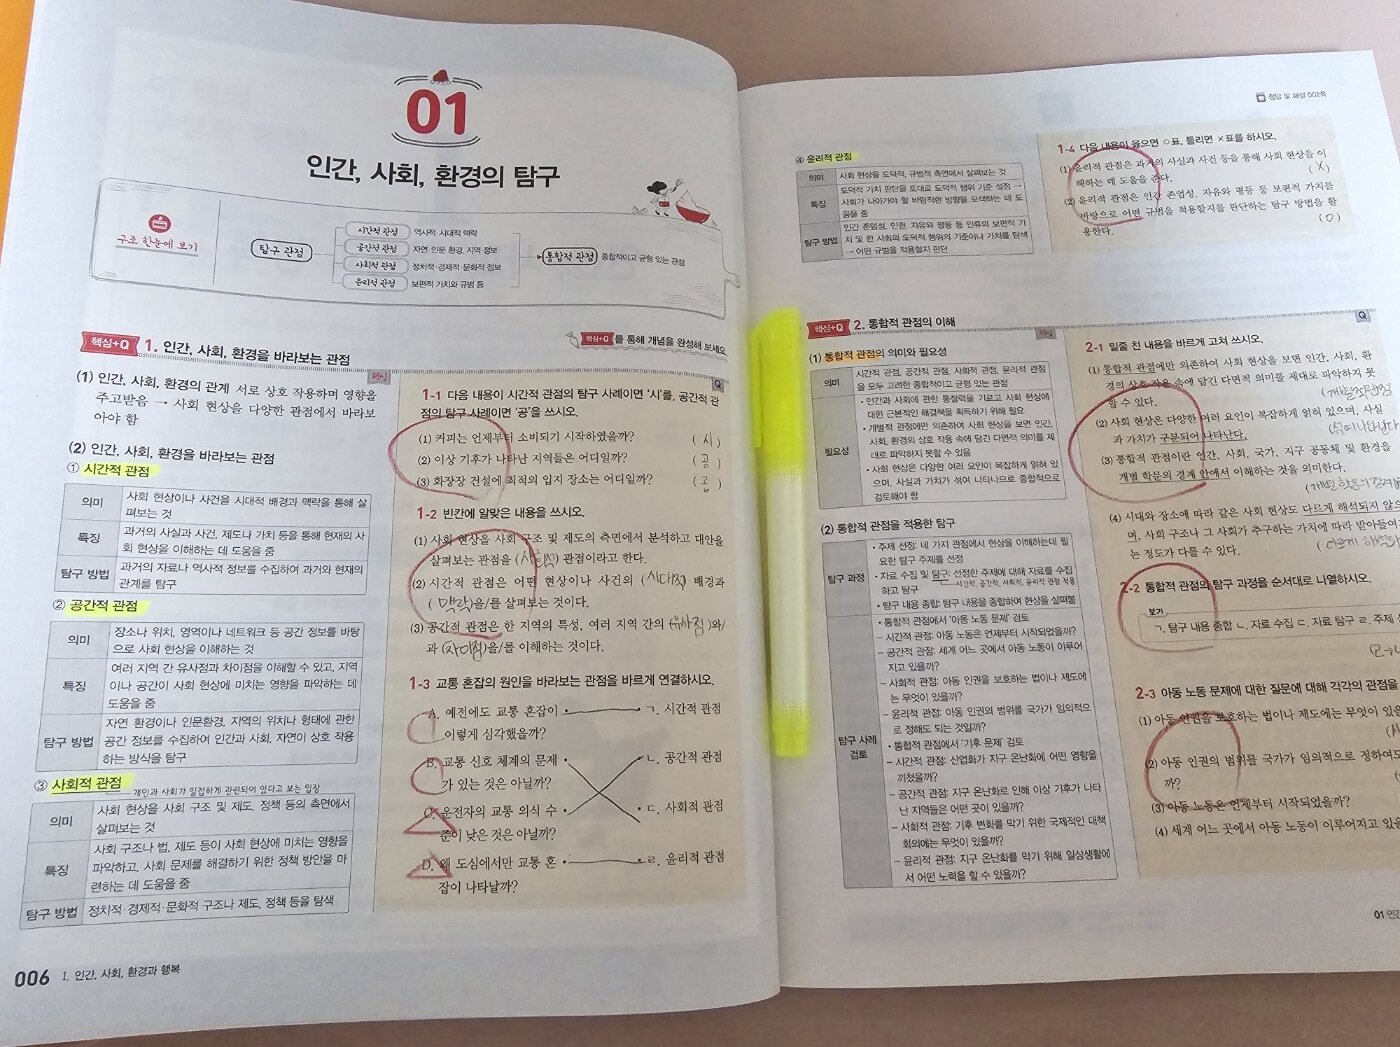 01
인간, 사회, 환경의 탐구
구조 한눈에 보기
탐구 관점
시간적 관점 역사적·시대적 맥락
공간적 관점 자연·인문 환경, 지역 정보
사회적 관점 정치적·경제적·문화적 정보
윤리적 관점 보편적 가치와 규범 등
통합적 관점 종합적이고 균형 있는 관점
핵심+Q 1. 인간, 사회, 환경을 바라보는 관점
핵심+Q 를 통해 개념을 완성해 보세요.
핵심
(1) 인간, 사회, 환경의 관계 서로 상호 작용하며 영향을
주고받음 → 사회 현상을 다양한 관점에서 바라보
아야 함
(2) 인간, 사회, 환경을 바라보는 관점
① 시간적 관점
의미 사회 현상이나 사건을 시대적 배경과 맥락을 통해 살
펴보는 것
특징 과거의 사실과 사건, 제도나 가치 등을 통해 현재의 사
회 현상을 이해하는 데 도움을 줌
탐구 방법 과거의 자료나 역사적 정보를 수집하여 과거와 현재의
관계를 탐구
② 공간적 관점
의미 장소나 위치, 영역이나 네트워크 등 공간 정보를 바탕
으로 사회 현상을 이해하는 것
특징 여러 지역 간 유사점과 차이점을 이해할 수 있고, 지역
이나 공간이 사회 현상에 미치는 영향을 파악하는 데
도움을 줌
탐구 방법 자연 환경이나 인문환경, 지역의 위치나 형태에 관한
공간 정보를 수집하여 인간과 사회, 자연이 상호 작용
하는 방식을 탐구
③ 사회적 관점
개인과 사회가 밀접하게 관련되어 있다고 보는 입장
의미 사회 현상을 사회 구조 및 제도, 정책 등의 측면에서
살펴보는 것
특징 사회 구조나 법, 제도 등이 사회 현상에 미치는 영향을
파악하고, 사회 문제를 해결하기 위한 정책 방안을 마
련하는 데 도움을 줌
탐구 방법 정치적·경제적·문화적 구조나 제도, 정책 등을 탐색
Q
1-1 다음 내용이 시간적 관점의 탐구 사례이면 '시'를, 공간적 관
점의 탐구 사례이면 '공'을 쓰시오.
(1) 커피는 언제부터 소비되기 시작하였을까? ( 시 )
(2) 이상 기후가 나타난 지역들은 어디일까? ( 공 )
(3) 화장장 건설에 최적의 입지 장소는 어디일까? ( 공 )
1-2 빈칸에 알맞은 내용을 쓰시오.
(1) 사회 현상을 사회 구조 및 제도의 측면에서 분석하고 대안을
살펴보는 관점을 (사회적) 관점이라고 한다.
(2) 시간적 관점은 어떤 현상이나 사건의 (시대적) 배경과
( 맥락 )을/를 살펴보는 것이다.
(3) 공간적 관점은 한 지역의 특성, 여러 지역 간의 (유사점)와/
과 (차이점)을/를 이해하는 것이다.
1-3 교통 혼잡의 원인을 바라보는 관점을 바르게 연결하시오.
A. 예전에도 교통 혼잡이 ㄱ. 시간적 관점
이렇게 심각했을까?
B. 교통 신호 체계의 문제 ㄴ. 공간적 관점
가 있는 것은 아닐까?
C. 운전자의 교통 의식 수 ㄷ. 사회적 관점
준이 낮은 것은 아닐까?
D. 왜 도심에서만 교통 혼 ㄹ. 윤리적 관점
잡이 나타날까?
006 I. 인간, 사회, 환경과 행복
정답 및 해설 002쪽
④ 윤리적 관점
의미 사회 현상을 도덕적, 규범적 측면에서 살펴보는 것
특징 도덕적 가치 판단을 토대로 도덕적 행위 기준 설정 →
사회가 나아가야 할 바람직한 방향을 모색하는 데 도
움을 줌
탐구 방법 인간 존엄성, 인권, 자유와 평등 등 인류의 보편적 가
치 및 한 사회의 도덕적 행위의 기준이나 가치를 탐색
→ 어떤 규범을 적용할지 판단
1-4 다음 내용이 옳으면 ○표, 틀리면 ×표를 하시오.
(1) 윤리적 관점은 과거의 사실과 사건 등을 통해 사회 현상을 이
해하는 데 도움을 준다. ( X )
(2) 윤리적 관점은 인간 존엄성, 자유와 평등 등 보편적 가치를
바탕으로 어떤 규범을 적용할지를 판단하는 탐구 방법을 활
용한다. ( O )
핵심+Q 2. 통합적 관점의 이해
핵심
(1) 통합적 관점의 의미와 필요성
의미 시간적 관점, 공간적 관점, 사회적 관점, 윤리적 관점
을 모두 고려한 종합적이고 균형 있는 관점
필요성 • 인간과 사회에 관한 통찰력을 기르고 사회 현상에
대한 근본적인 해결책을 획득하기 위해 필요
• 개별적 관점에만 의존하여 사회 현상을 보면 인간,
사회, 환경의 상호 작용 속에 담긴 다면적 의미를 제
대로 파악하지 못할 수 있음
• 사회 현상은 다양한 여러 요인이 복잡하게 얽혀 있
으며, 사실과 가치가 섞여 나타나므로 종합적으로
검토해야 함
(2) 통합적 관점을 적용한 탐구
탐구 과정 • 주제 선정: 네 가지 관점에서 현상을 이해하는데 필
요한 탐구 주제를 선정
• 자료 수집 및 탐구: 선정한 주제에 대해 자료를 수집
하고 탐구 시간적, 공간적, 사회적, 윤리적 관점 적용
• 탐구 내용 종합: 탐구 내용을 종합하여 현상을 살펴봄
탐구 사례 검토 • 통합적 관점에서 '아동 노동 문제' 검토
– 시간적 관점: 아동 노동은 언제부터 시작되었을까?
– 공간적 관점: 세계 어느 곳에서 아동 노동이 이루어
지고 있을까?
– 사회적 관점: 아동 인권을 보호하는 법이나 제도에
는 무엇이 있을까?
– 윤리적 관점: 아동 인권의 범위를 국가가 임의적으
로 정해도 되는 것일까?
• 통합적 관점에서 '기후 문제' 검토
– 시간적 관점: 산업화가 지구 온난화에 어떤 영향을
끼쳤을까?
– 공간적 관점: 지구 온난화로 인해 이상 기후가 나타
난 지역들은 어떤 곳이 있을까?
– 사회적 관점: 기후 변화를 막기 위한 국제적인 대책
회의에는 무엇이 있을까?
– 윤리적 관점: 지구 온난화를 막기 위해 일상생활에
서 어떤 노력을 할 수 있을까?
Q
2-1 밑줄 친 내용을 바르게 고쳐 쓰시오.
(1) 통합적 관점에만 의존하여 사회 현상을 보면 인간, 사회, 환
경의 상호 작용 속에 담긴 다면적 의미를 제대로 파악하지 못
할 수 있다. (개별적관점
(2) 사회 현상은 다양한 여러 요인이 복잡하게 얽혀 있으며, 사실
과 가치가 구분되어 나타난다. (섞여 나타난다
(3) 통합적 관점이란 인간, 사회, 국가, 지구 공동체 및 환경을
개별 학문의 경계 안에서 이해하는 것을 의미한다.
(개별 학문의 경계를
(4) 시대와 장소에 따라 같은 사회 현상도 다르게 해석되지 않으
며, 사회 구조나 그 사회가 추구하는 가치에 따라 받아들여
는 정도가 다를 수 있다. (다르게 해석
2-2 통합적 관점의 탐구 과정을 순서대로 나열하시오.
보기
ㄱ. 탐구 내용 종합 ㄴ. 자료 수집 ㄷ. 자료 탐구 ㄹ. 주제
2-3 아동 노동 문제에 대한 질문에 대해 각각의 관점을
(1) 아동 인권을 보호하는 법이나 제도에는 무엇이 있을
(2) 아동 인권의 범위를 국가가 임의적으로 정하여도
까?
(3) 아동 노동은 언제부터 시작되었을까?
(4) 세계 어느 곳에서 아동 노동이 이루어지고 있을
01 인간